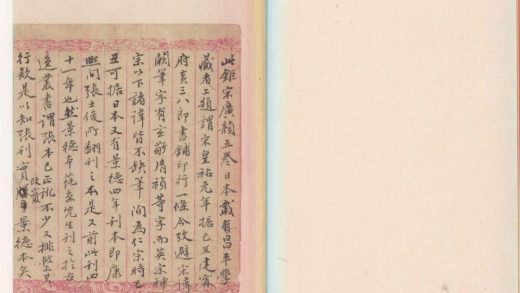 此鉅宋廣韻五卷日本舊有昌平學
藏者上題謂宋皇祐元年據己丑建甯
府黃三八郎書鋪印行一條今攷避宋諱
闕筆字有玄敬清禎等字而英宗神
宗以下諸諱皆不缺筆洵為仁宗時己
丑可據日本又有景德四年刊本即康
熙間張士俊所翻刊之本是又前此刊四
十一年也然景德本先生刊之於古
逸叢書謂張本已正訛不少又排整其
行款是以知張刊實改竄景德本矣